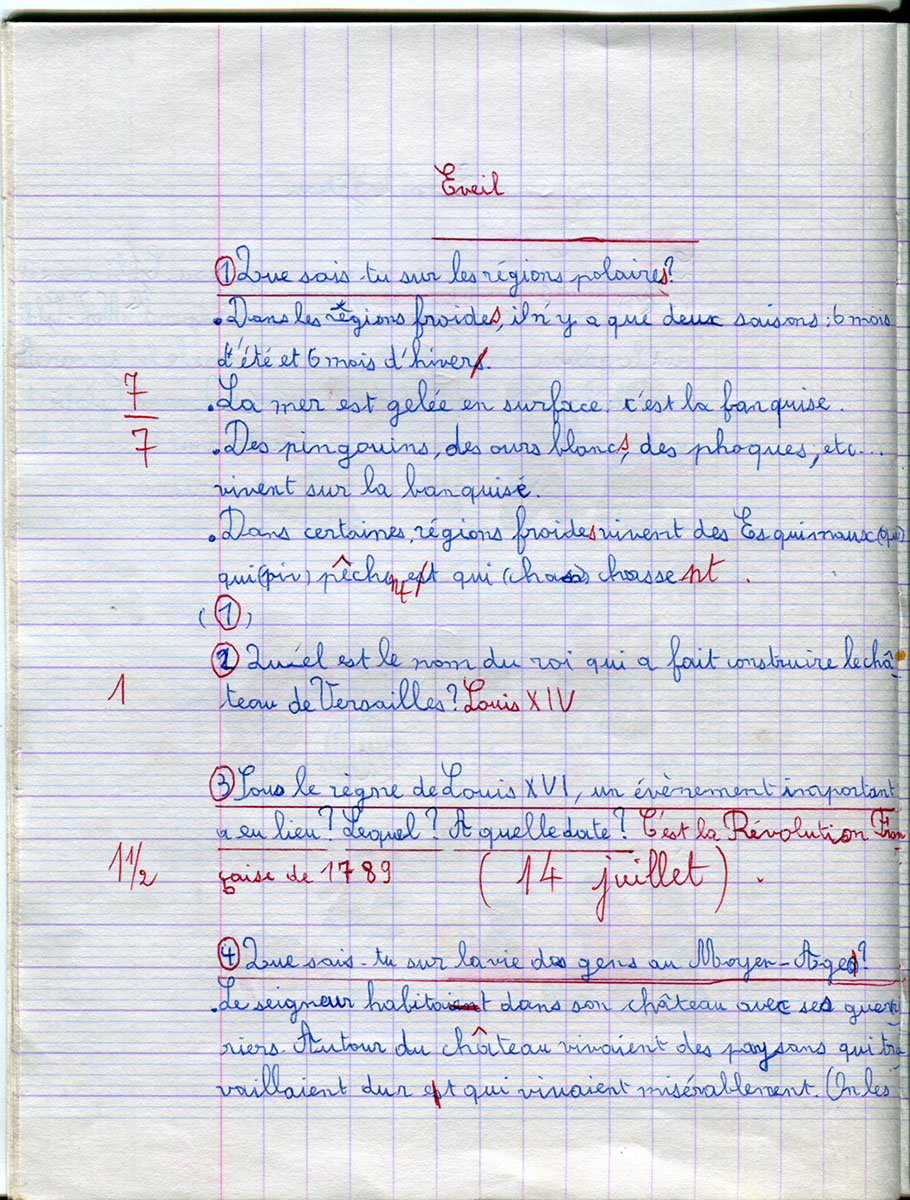 Eveil
① Que sais-tu sur les régions polaires?
. Dans les régions froides, il n'y a que deux saisons : 6 mois
d'été et 6 mois d'hivers.
7
. La mer est gelée en surface. c'est la banquise.
7
. Des pingouins, des ours blancs, des phoques, etc...
vivent sur la banquise.
. Dans certaines, régions froides vivent des Esquimaux (qui)
qui (piv) pêchent et qui (chass) chassent .
(1)
② Quel est le nom du roi qui a fait construire le châ-
1
teau de Versailles? Louis XIV
③ Sous le règne de Louis XVI, un évènement important
a eu lieu? Lequel? A quelle date? C'est la Révolution Fran-
1 1/2
çaise de 1789 ( 14 juillet ) .
④ Que sais-tu sur la vie des gens au Moyen-Age?
. Le seigneur habitait dans son château avec ses guer-
riers. Autour du château vivaient des paysans qui tra-
vaillaient dur et qui vivaient misérablement. (On les